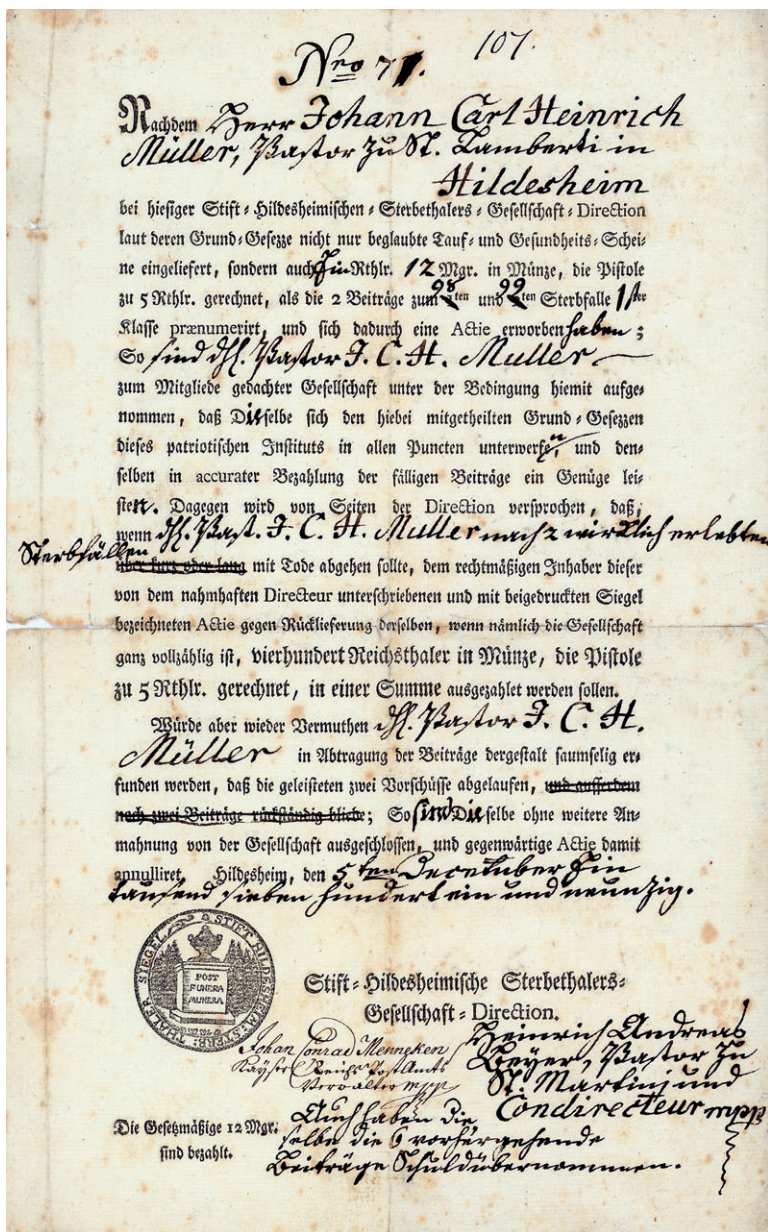 Nro 71. 107.
Nachdem Herr Johann Carl Heinrich
Müller, Pastor zu St. Lamberti in
Hildesheim
bei hiesiger Stift-Hildesheimischen-Sterbethalers-Gesellschaft-Direction
laut deren Grund-Gesezze nicht nur beglaubte Tauf- und Gesundheits-Schei-
ne eingeliefert, sondern auch Ein Rthlr. 12 Mgr. in Münze, die Pistole
zu 5 Rthlr. gerechnet, als die 2 Beiträge zum 98ten und 99ten Sterbfalle 1ster
Klasse prænumerirt, und sich dadurch eine Actie erworben haben;
So sind dhl. Pastor J. C. H. Muller
zum Mitgliede gedachter Gesellschaft unter der Bedingung hiemit aufge-
nommen, daß Dieselbe sich den hiebei mitgetheilten Grund-Gesezzen
dieses patriotischen Instituts in allen Puncten unterwerfen, und den-
selben in accurater Bezahlung der fälligen Beiträge ein Genüge lei-
sten. Dagegen wird von Seiten der Direction versprochen, daß,
wenn dhl. Past. J. C. H. Muller nach 2 wirklich erlebten
Sterbfällen
über kurz oder lang mit Tode abgehen sollte, dem rechtmäßigen Inhaber dieser
von dem nahmhaften Directeur unterschriebenen und mit beigedruckten Siegel
bezeichneten Actie gegen Rücklieferung derselben, wenn nämlich die Gesellschaft
ganz vollzählig ist, vierhundert Reichsthaler in Münze, die Pistole
zu 5 Rthlr. gerechnet, in einer Summe ausgezahlet werden sollen.
Würde aber wieder Vermuthen dhl. Pastor J. C. H.
Müller in Abtragung der Beiträge dergestalt saumselig er-
funden werden, daß die geleisteten zwei Vorschüsse abgelaufen, und ausserdem
noch zwei Beiträge rückständig bliebe; So sind Dieselbe ohne weitere An-
mahnung von der Gesellschaft ausgeschlossen, und gegenwärtige Actie damit
annulliret. Hildesheim, den 5ten December Ein
tausend sieben hundert ein und neunzig.
SIEGEL STIFT HILDESHEIM: STERB: THALER
POST
FUNERA
MUNERA
Stift-Hildesheimische Sterbethalers-
Gesellschaft-Direction.
Johan Conrad Menneken
Kayserl Reichs Post Amts
Verwalter mpp
Heinrich Andreas
Beyer, Pastor zu
St. Martini und
Condirecteur mpp
Die Gesetzmäßige 12 Mgr.
sind bezahlt.
Auch haben die
selbe die 6 vorhergehende
Beiträge Schuld übernommen.